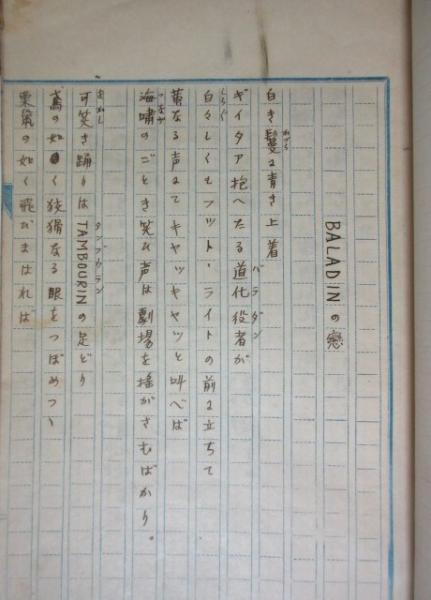 BALADINの戀
白き鬘に青き上着
ギイタア抱へたる道化役者が
バラダン
白々しくもフット・ライトの前に立ちて
しらじら
なる声にてキャッキャッと叫べば
海嘯のごとき笑ひ声は劇場を揺がさむばかり。
つなみ
可笑き踊りはTAMBOURINの足どり
をかし
タンブウラン
鳶の如く狡猾なる眼をつぼめつゝ
栗鼠の如く飛びまはれば